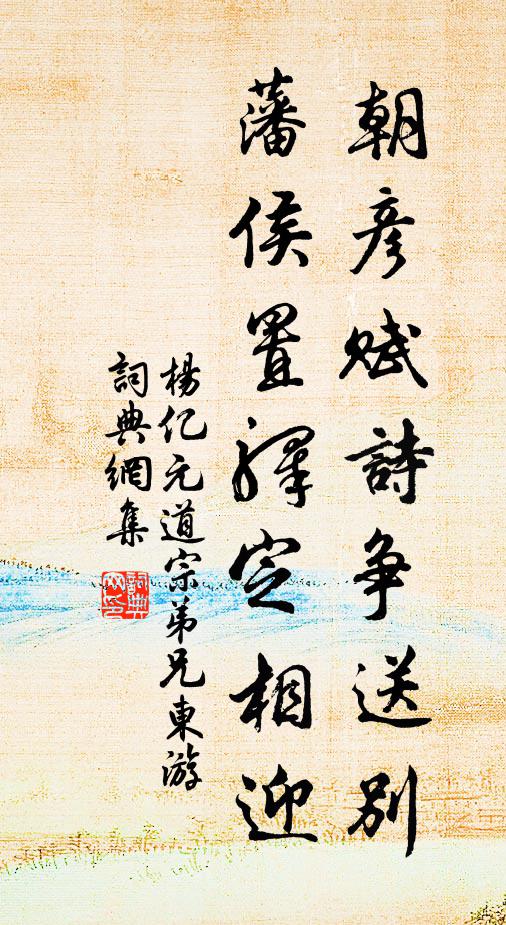 朝彦賦詩争送別
藩侯置驛定相迎
楊亿元道宗弟兄東游
詞典網集